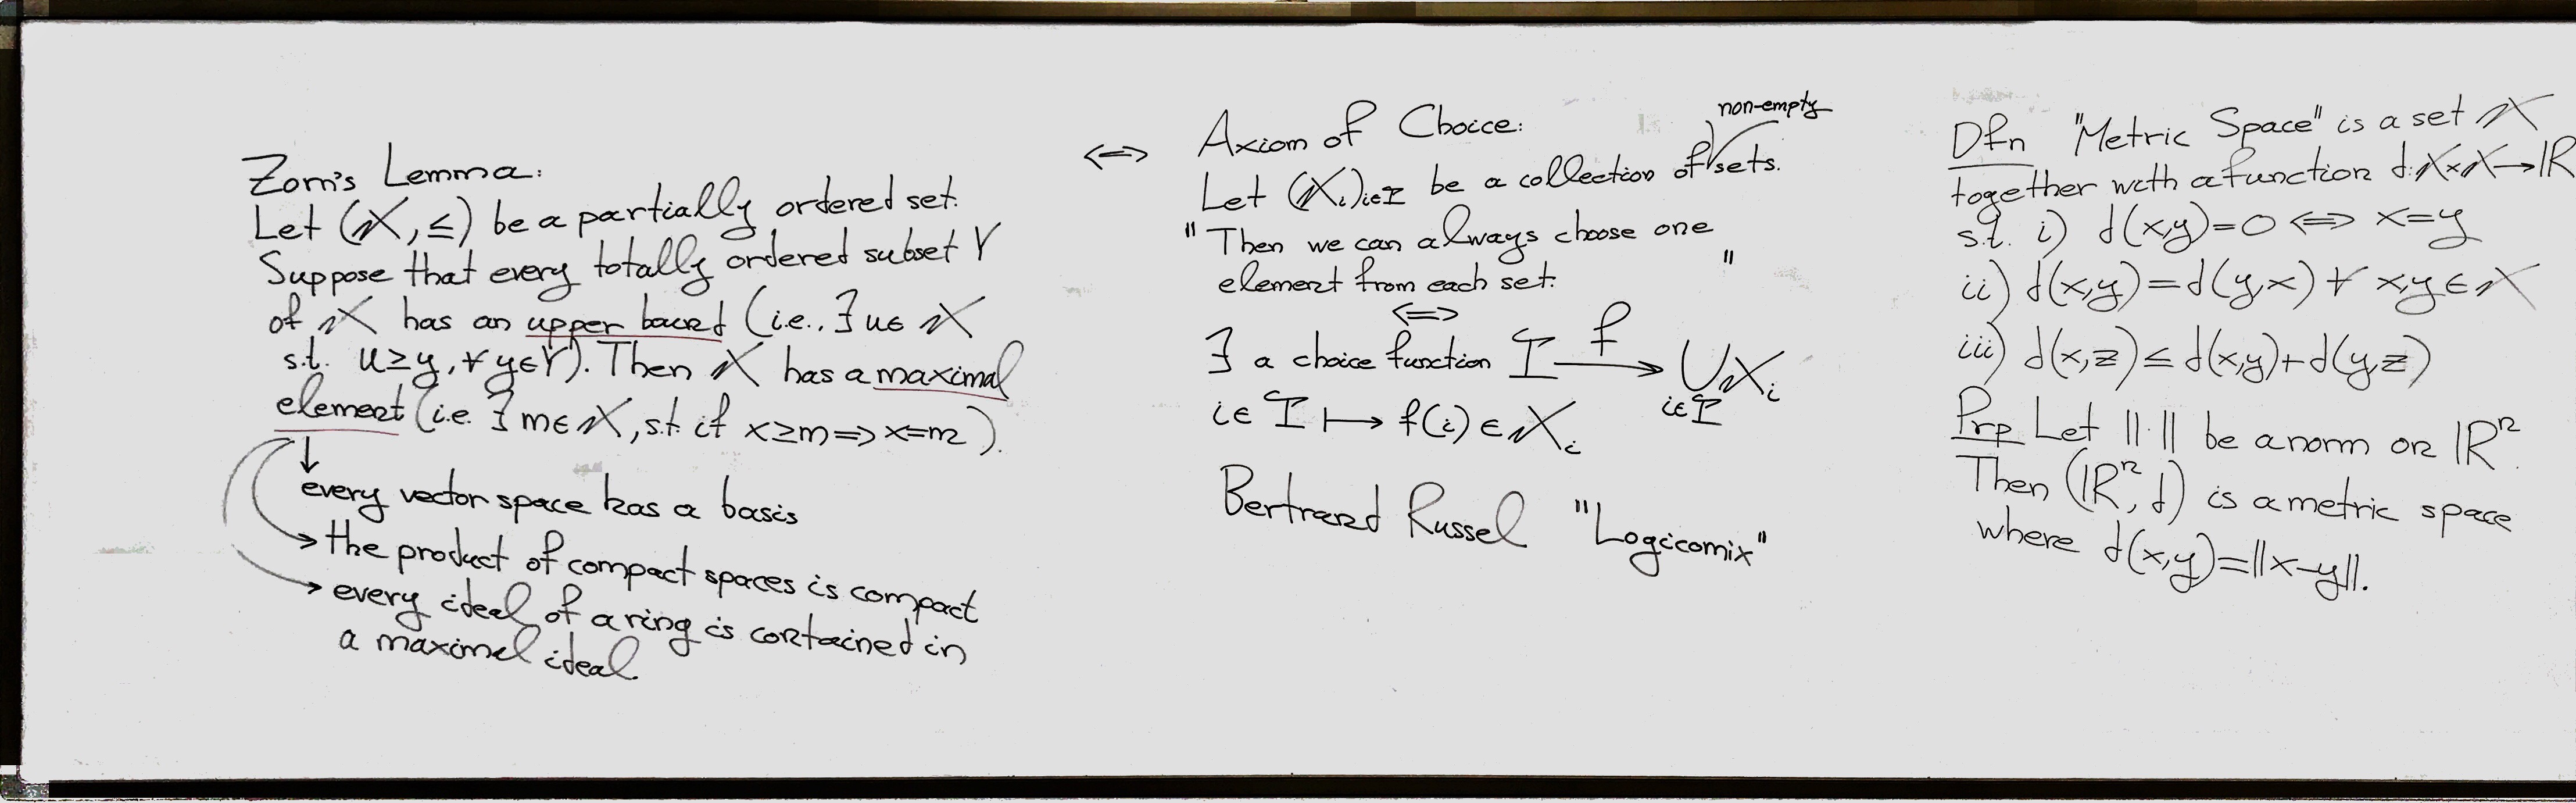 Zorn's Lemma:
Let (X, ≤) be a partially ordered set.
Suppose that every totally ordered subset Y
of X has an upper bound (i.e., ∃ u∈ X
s.t. u≥y, ∀ y∈Y). Then X has a maximal
element (i.e. ∃ m∈X, s.t. if x≥m => x=m).
every vector space has a basis
the product of compact spaces is compact
every ideal of a ring is contained in
a maximal ideal.
<=>
Axiom of Choice:
non-empty
Let (X_i)_{i∈I} be a collection of sets.
"Then we can always choose one
element from each set. "
<=>
∃ a choice function I —f→ ∪_{i∈I} X_i
i∈ I ↦ f(i) ∈ X_i
Bertrand Russel "Logicomix"
Dfn "Metric Space" is a set X
together with a function d: X×X→ℝ
s.t. i) d(x,y)=0 <=> x=y
ii) d(x,y)=d(y,x) ∀ x,y∈X
iii) d(x,z)≤d(x,y)+d(y,z)
Prp Let ||·|| be a norm on ℝⁿ.
Then (ℝⁿ, d) is a metric space
where d(x,y)=||x-y||.